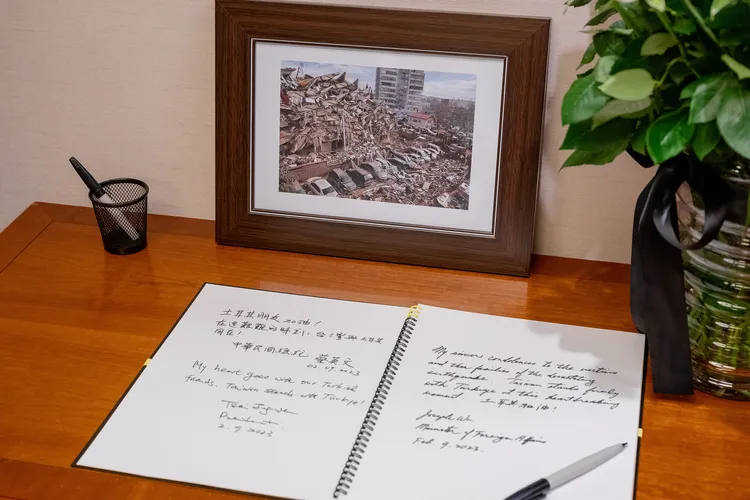 土耳其朋友加油!
在這艱難的時刻,台灣與土耳其
同在!
中華民國總統 蔡英文
02.09.2023
My heart goes with our Turkish
friends. Taiwan stands with Türkiye!
Tsai Ing-wen
President
2.9.2023
My sincere condolences to the victims
and the families of the devastating
earthquake. Taiwan stands firmly
with Türkiye at this heartbreaking
moment. 土耳其加油!
Joseph Wu
Minister of Foreign Affairs
Feb. 9. 2023.